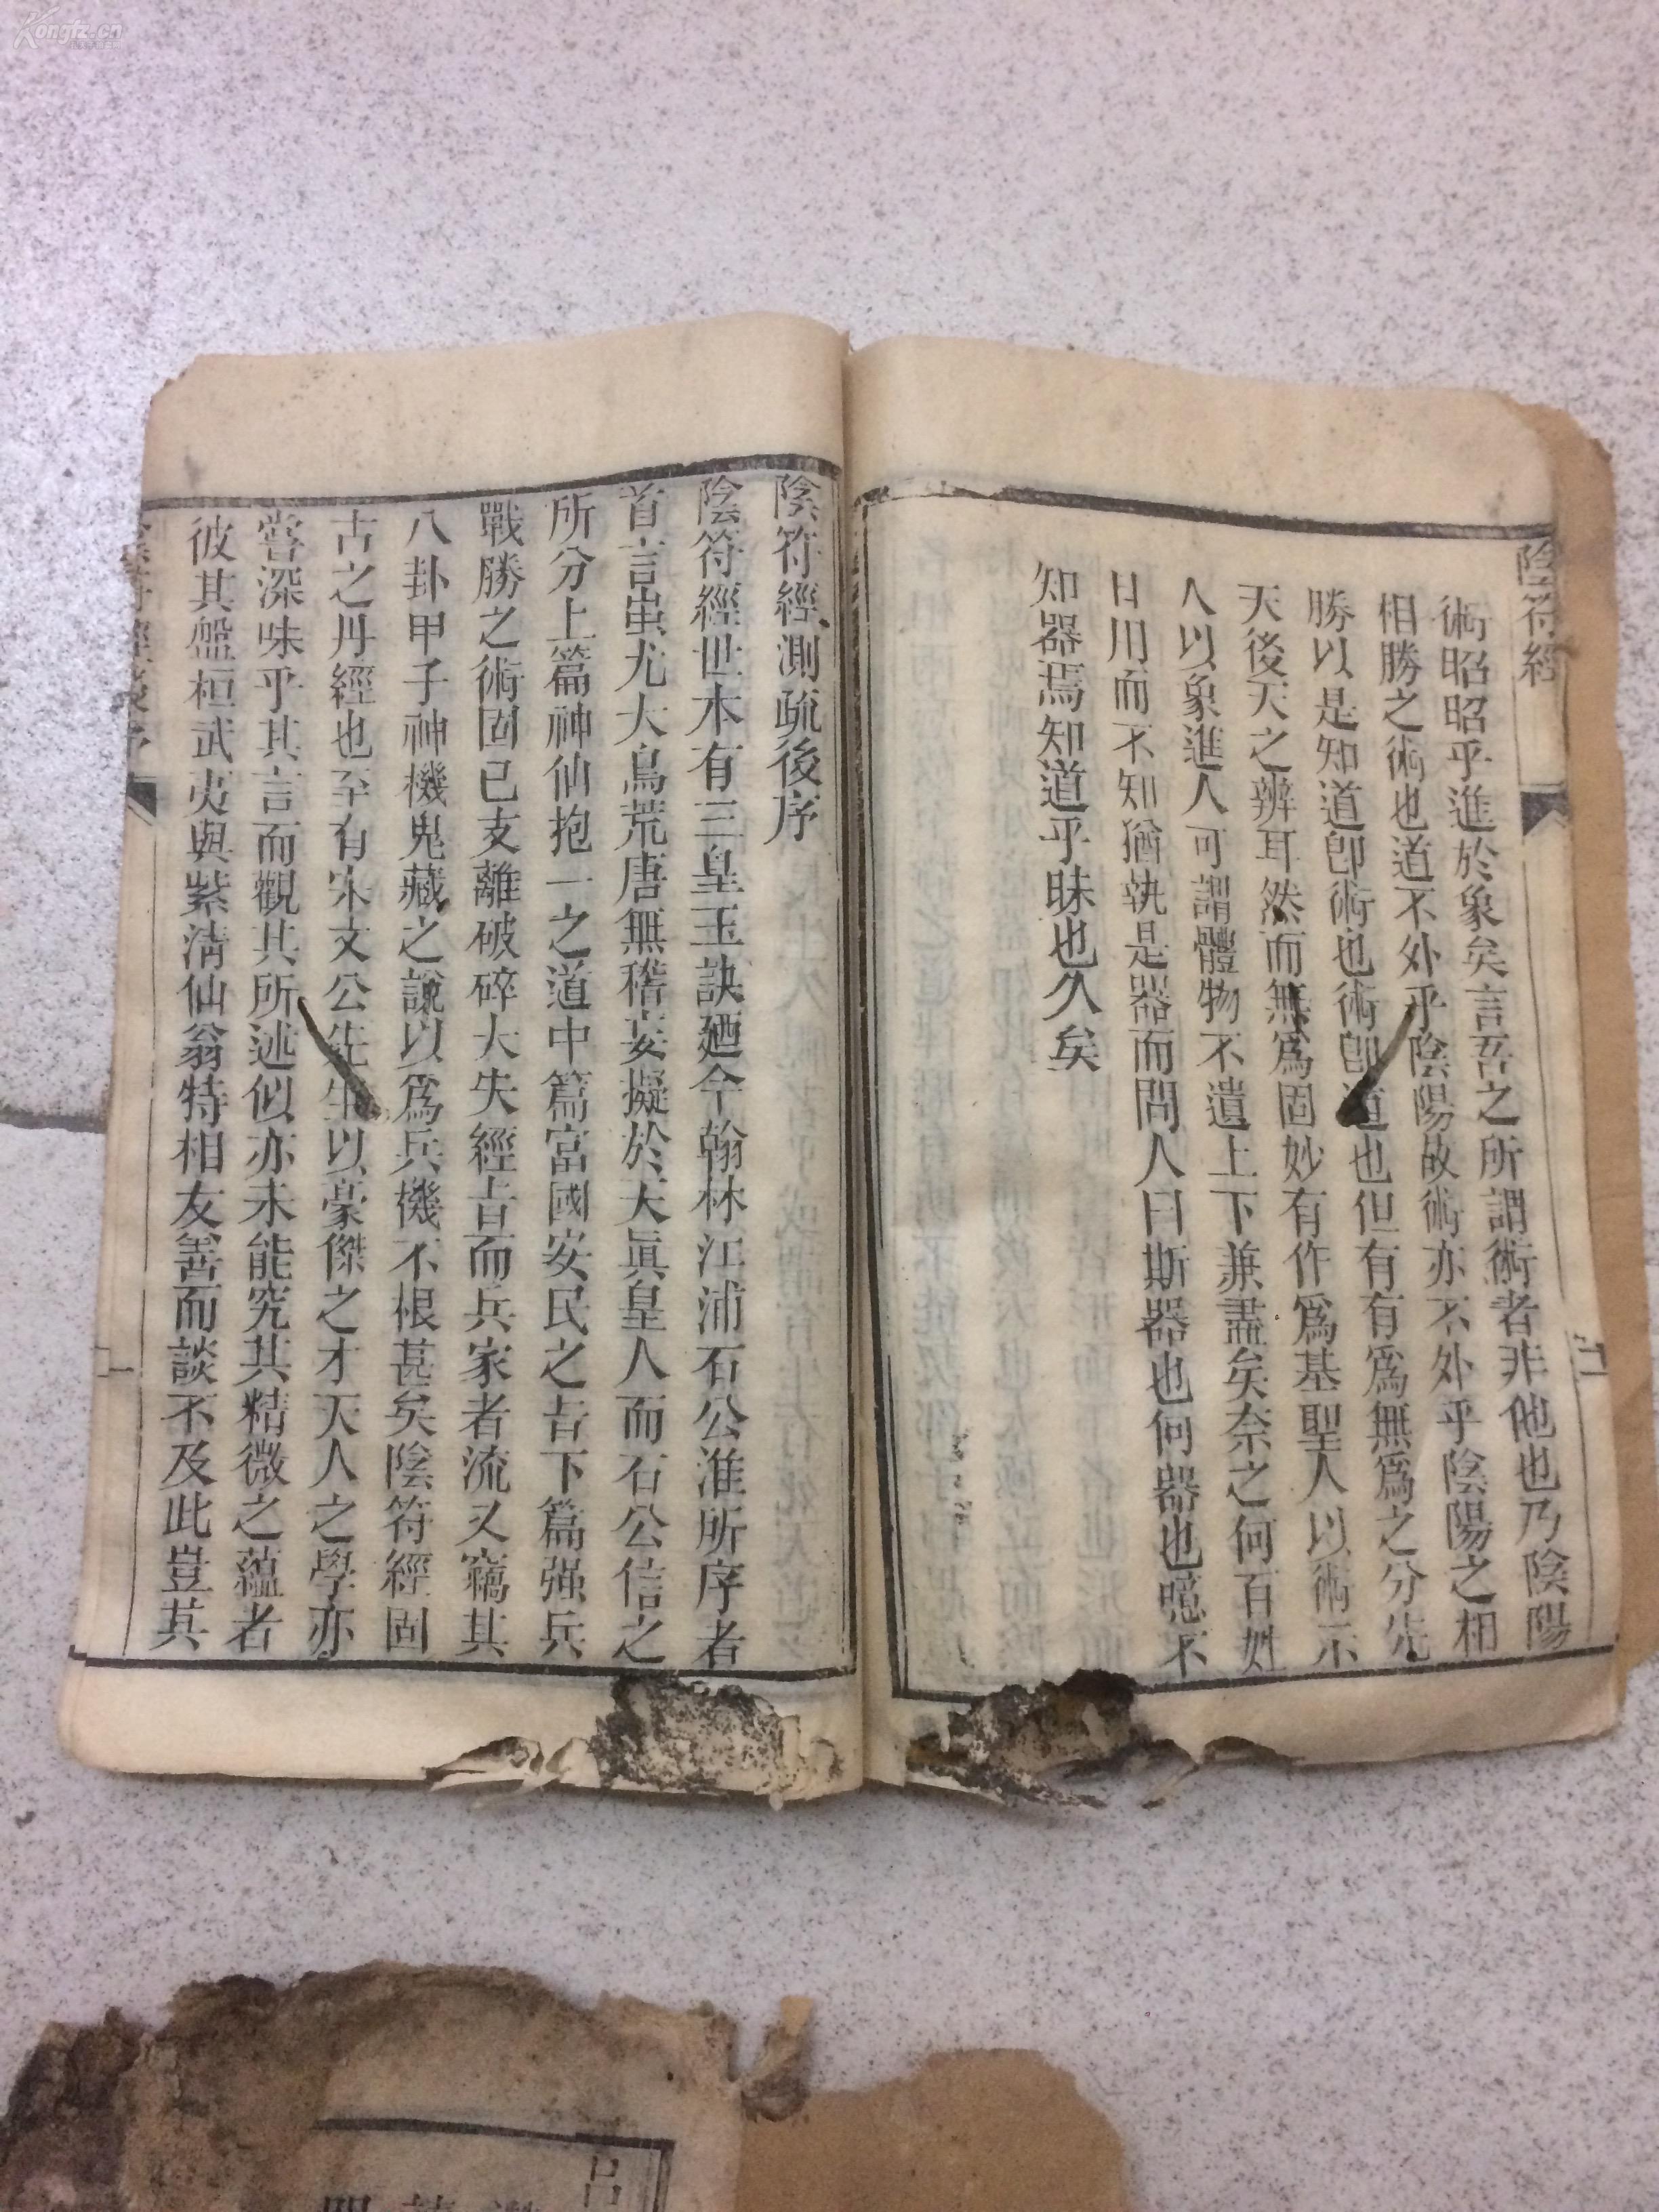 陰符經
術昭昭乎進於象矣言吾之所謂術者非他也乃陰陽
相勝之術也道不外乎陰陽故術亦不外乎陰陽之相
勝以是知道卽術也術卽道也但有有爲無爲之分先
天後天之辨耳然而無爲固妙有作爲基聖人以術示
人以象進人可謂體物不遺上下兼盡矣奈之何百姓
日用而不知猶執是器而問人曰斯器也何器也噫不
知器焉知道乎昧也久矣
陰符經測疏後序
陰符經世本有三皇玉訣廼今翰林江浦石公淮所序者
首言蚩尤大鳥荒唐無稽妄擬於天眞皇人而石公信之
所分上篇神仙抱一之道中篇富國安民之㫖下篇强兵
戰勝之術固已支離破碎大失經㫖而兵家者流又竊其
八卦甲子神機鬼藏之說以爲兵機不根甚矣陰符經固
古之丹經也至有宋文公先生以豪傑之才天人之學亦
嘗深味乎其言而觀其所述似亦未能究其精微之蘊者
彼其盤桓武夷與紫清仙翁特相友善而談不及此豈其
一
呂
Kongfz.cn